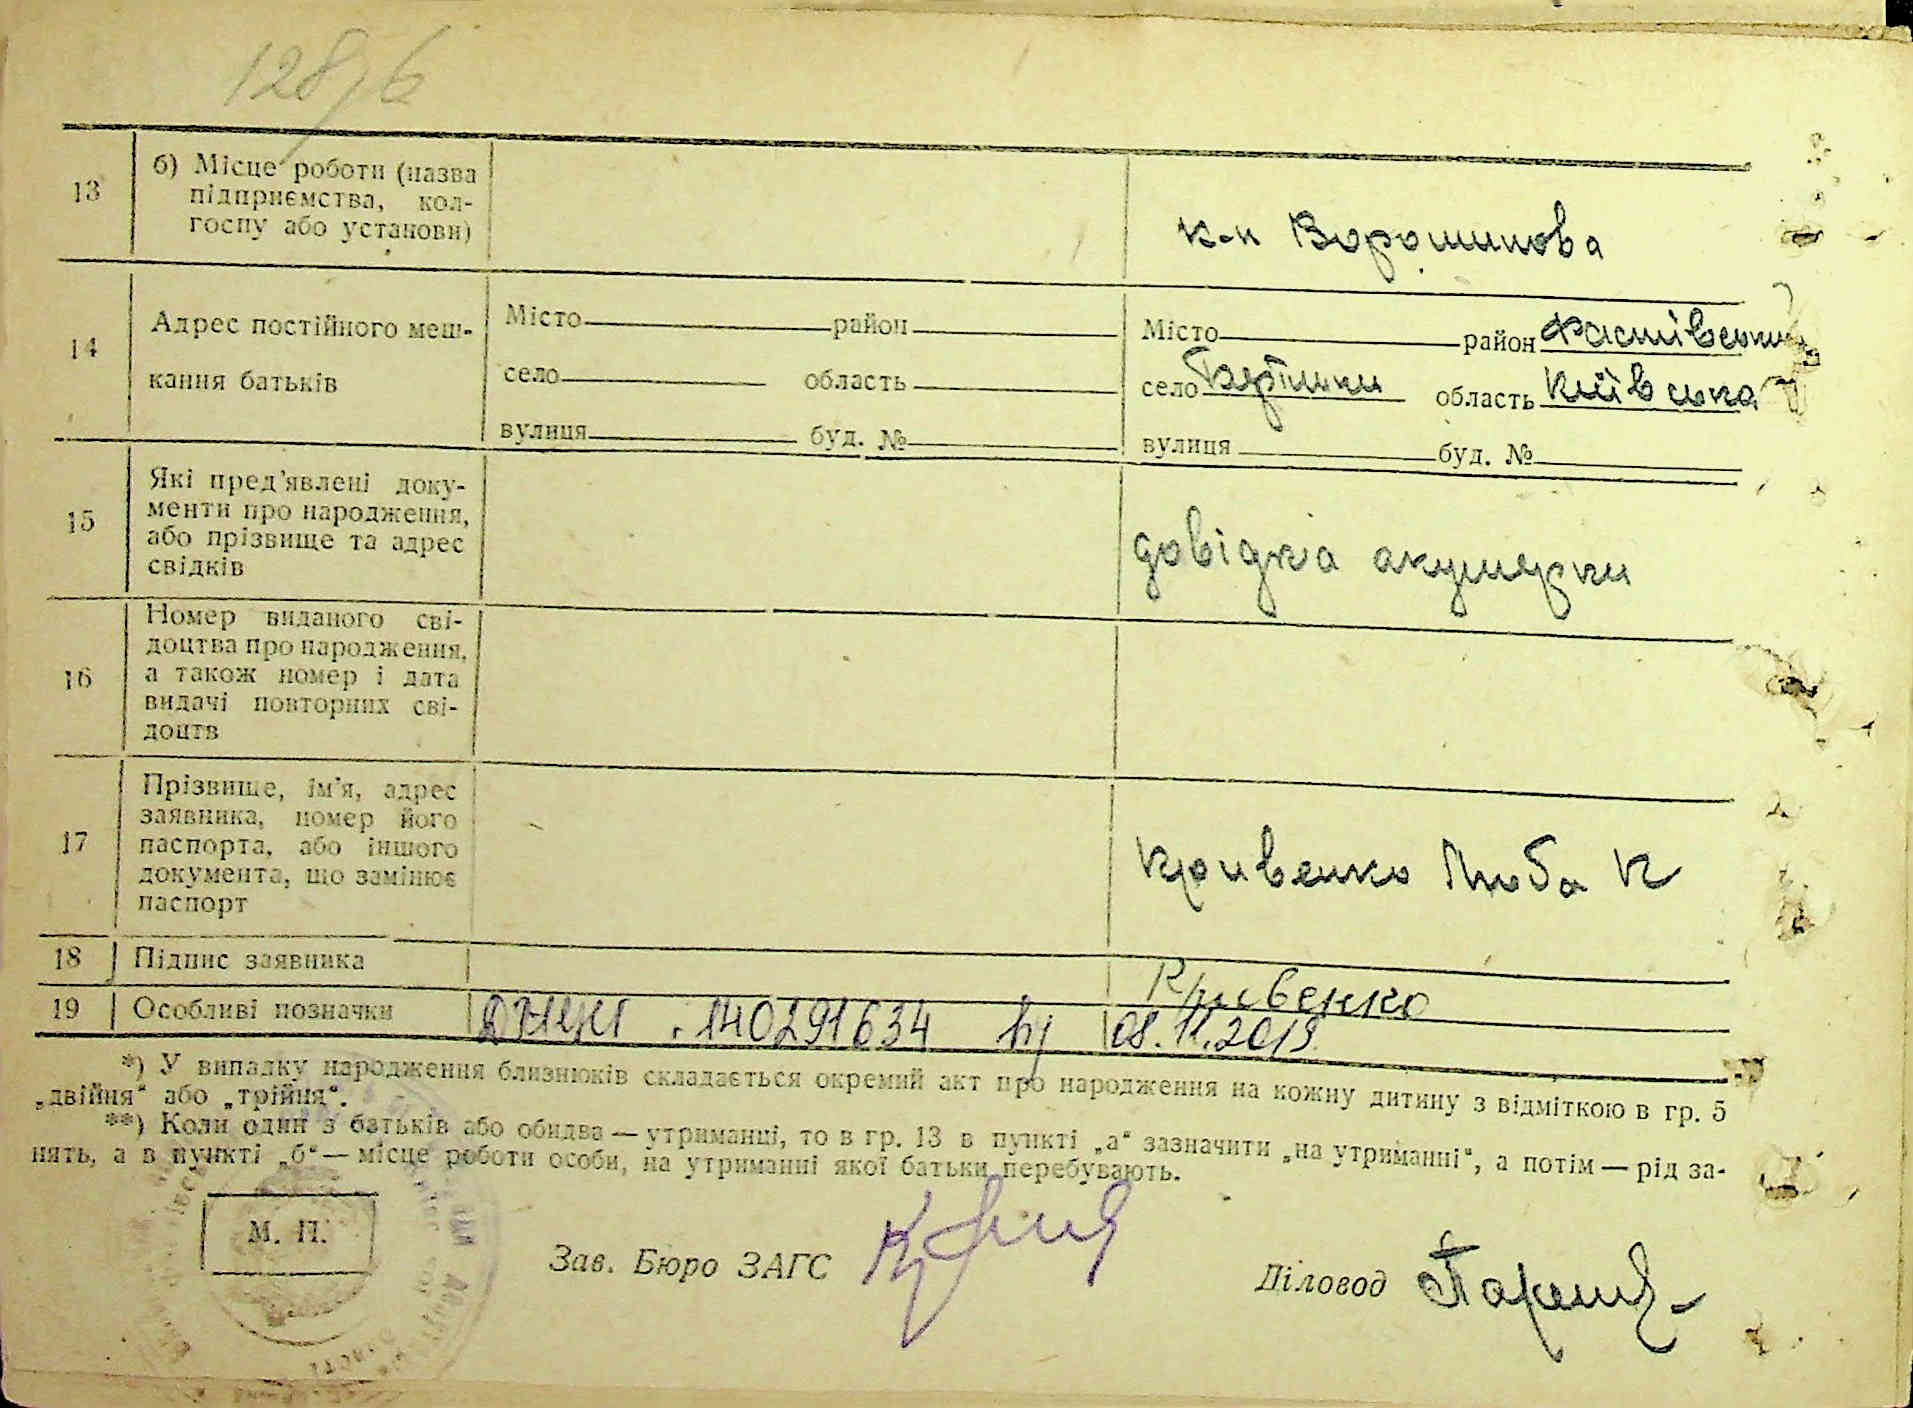 128/6
13 б) Місце роботи (назва
підприємства, кол-
госпу або установи)
к-п Ворошилова
14 Адрес постійного меш-
кання батьків
Місто район
село область
вулиця буд. №
Місто район Фастівський
село область Київська
вулиця буд. №
15 Які пред'явлені доку-
менти про народження,
або прізвище та адрес
свідків
довідка акушерки
16 Номер виданого сві-
доцтва про народження,
а також номер і дата
видачі повторних сві-
доцтв
17 Прізвище, ім'я, адрес
заявника, номер його
паспорта, або іншого
документа, що замінює
паспорт
Кривенко Люба К
18 Підпис заявника
Кривенко
19 Особливі позначки
140291634 08.11.2019
*) У випадку народження близнюків складається окремий акт про народження на кожну дитину з відміткою в гр. 5
„двійня“ або „трійня“.
**) Коли один з батьків або обидва — утриманці, то в гр. 13 в пункті „а“ зазначити „на утриманні“, а потім — рід за-
нять, а в пункті „б“ — місце роботи особи, на утриманні якої батьки перебувають.
М. П.
Зав. Бюро ЗАГС
Діловод